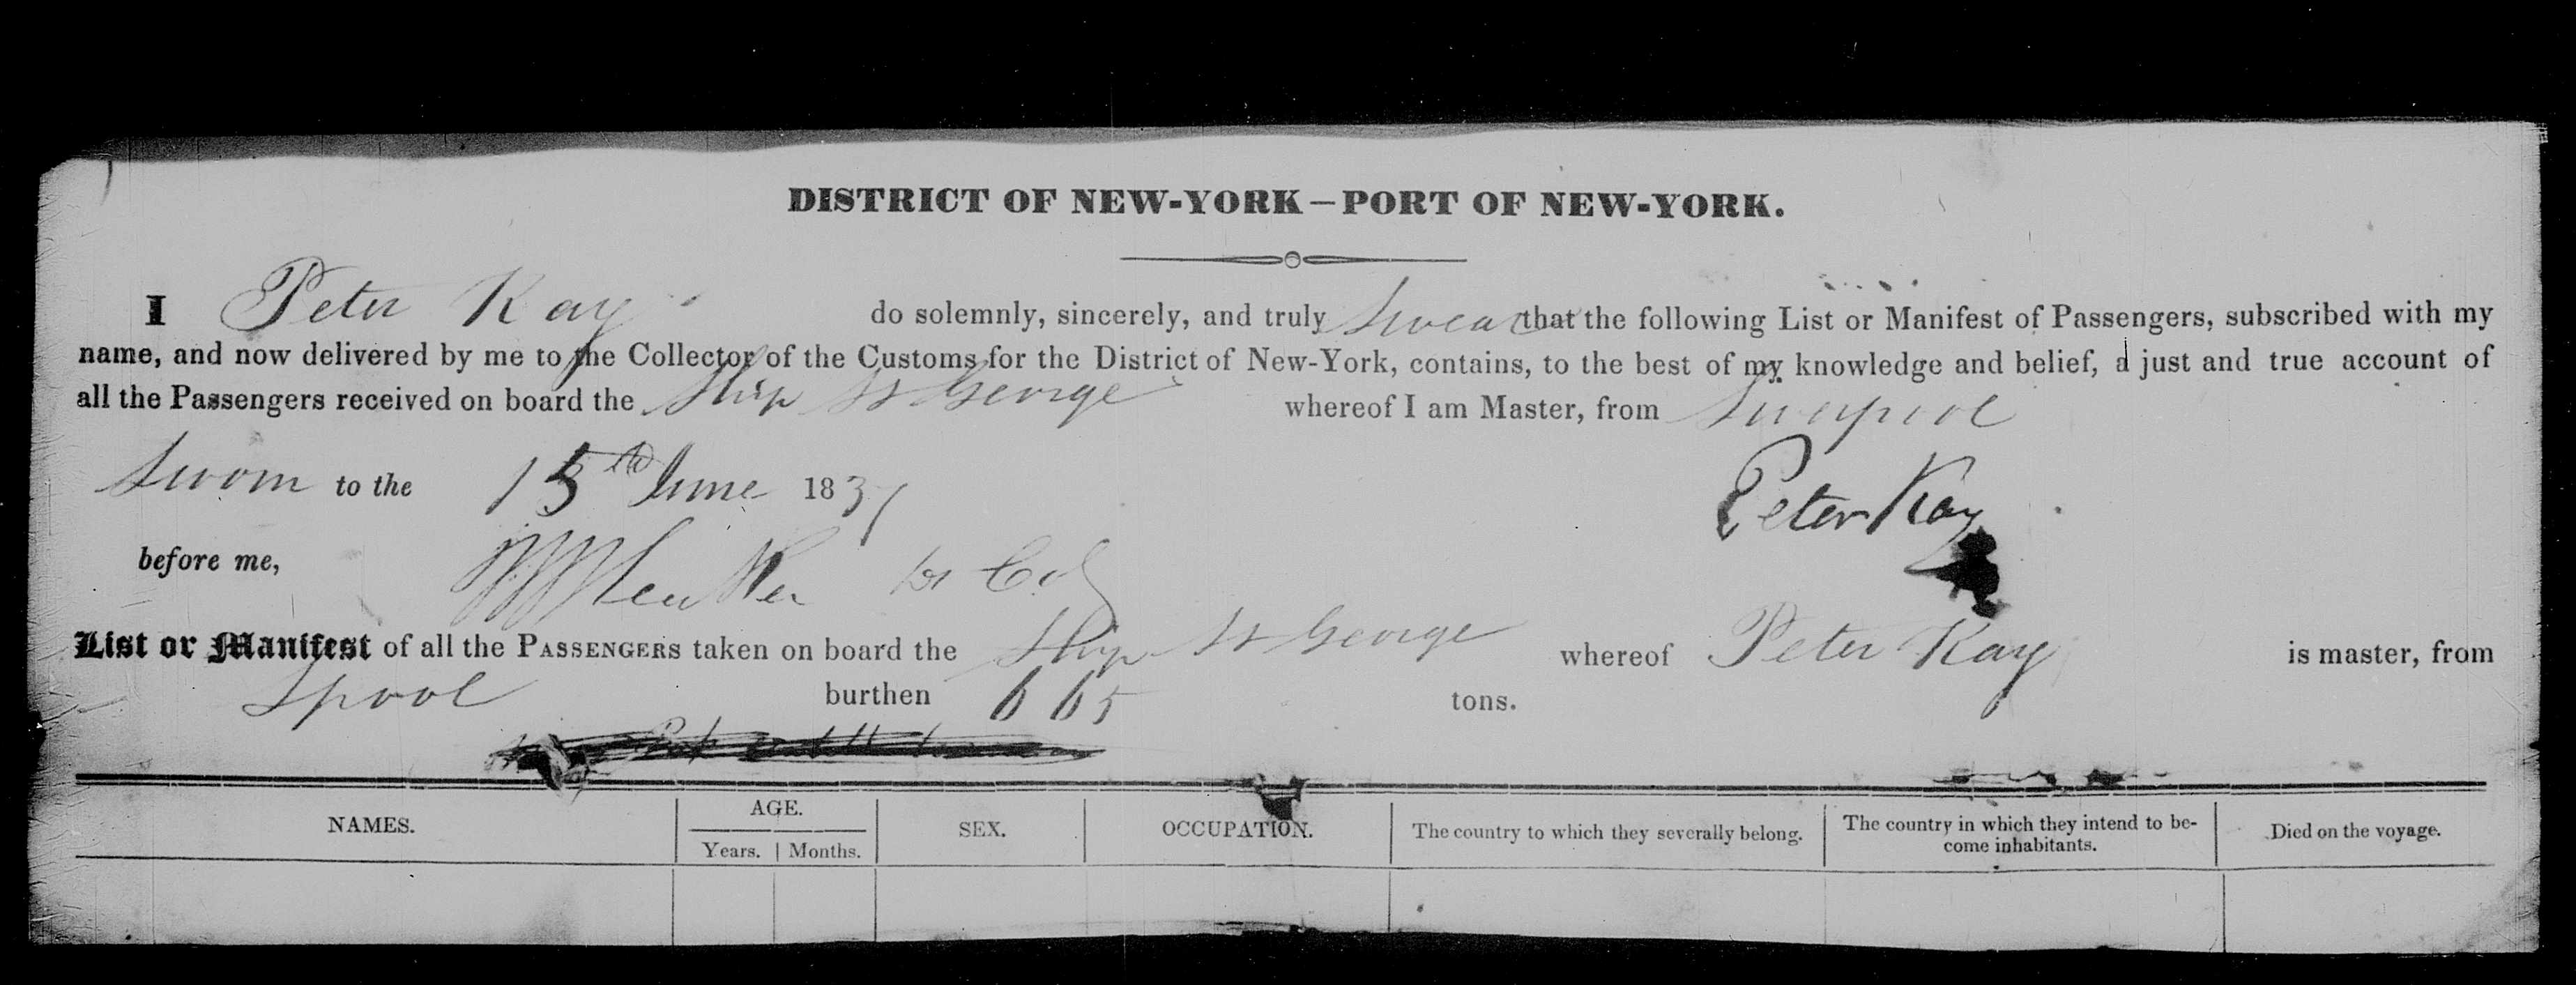 DISTRICT OF NEW-YORK—PORT OF NEW-YORK.
I Peter Kay do solemnly, sincerely, and truly Swear that the following List or Manifest of Passengers, subscribed with my
name, and now delivered by me to the Collector of the Customs for the District of New-York, contains, to the best of my knowledge and belief, a just and true account of
all the Passengers received on board the Ship St George whereof I am Master, from Liverpool
Sworn to the 15th June 1837
Peter Kay
before me,
List or Manifest of all the PASSENGERS taken on board the Ship St George whereof Peter Kay is master, from
Lpool burthen 665 tons.
NAMES. AGE. SEX. OCCUPATION. The country to which they severally belong. The country in which they intend to be-
come inhabitants. Died on the voyage.
Years. Months.